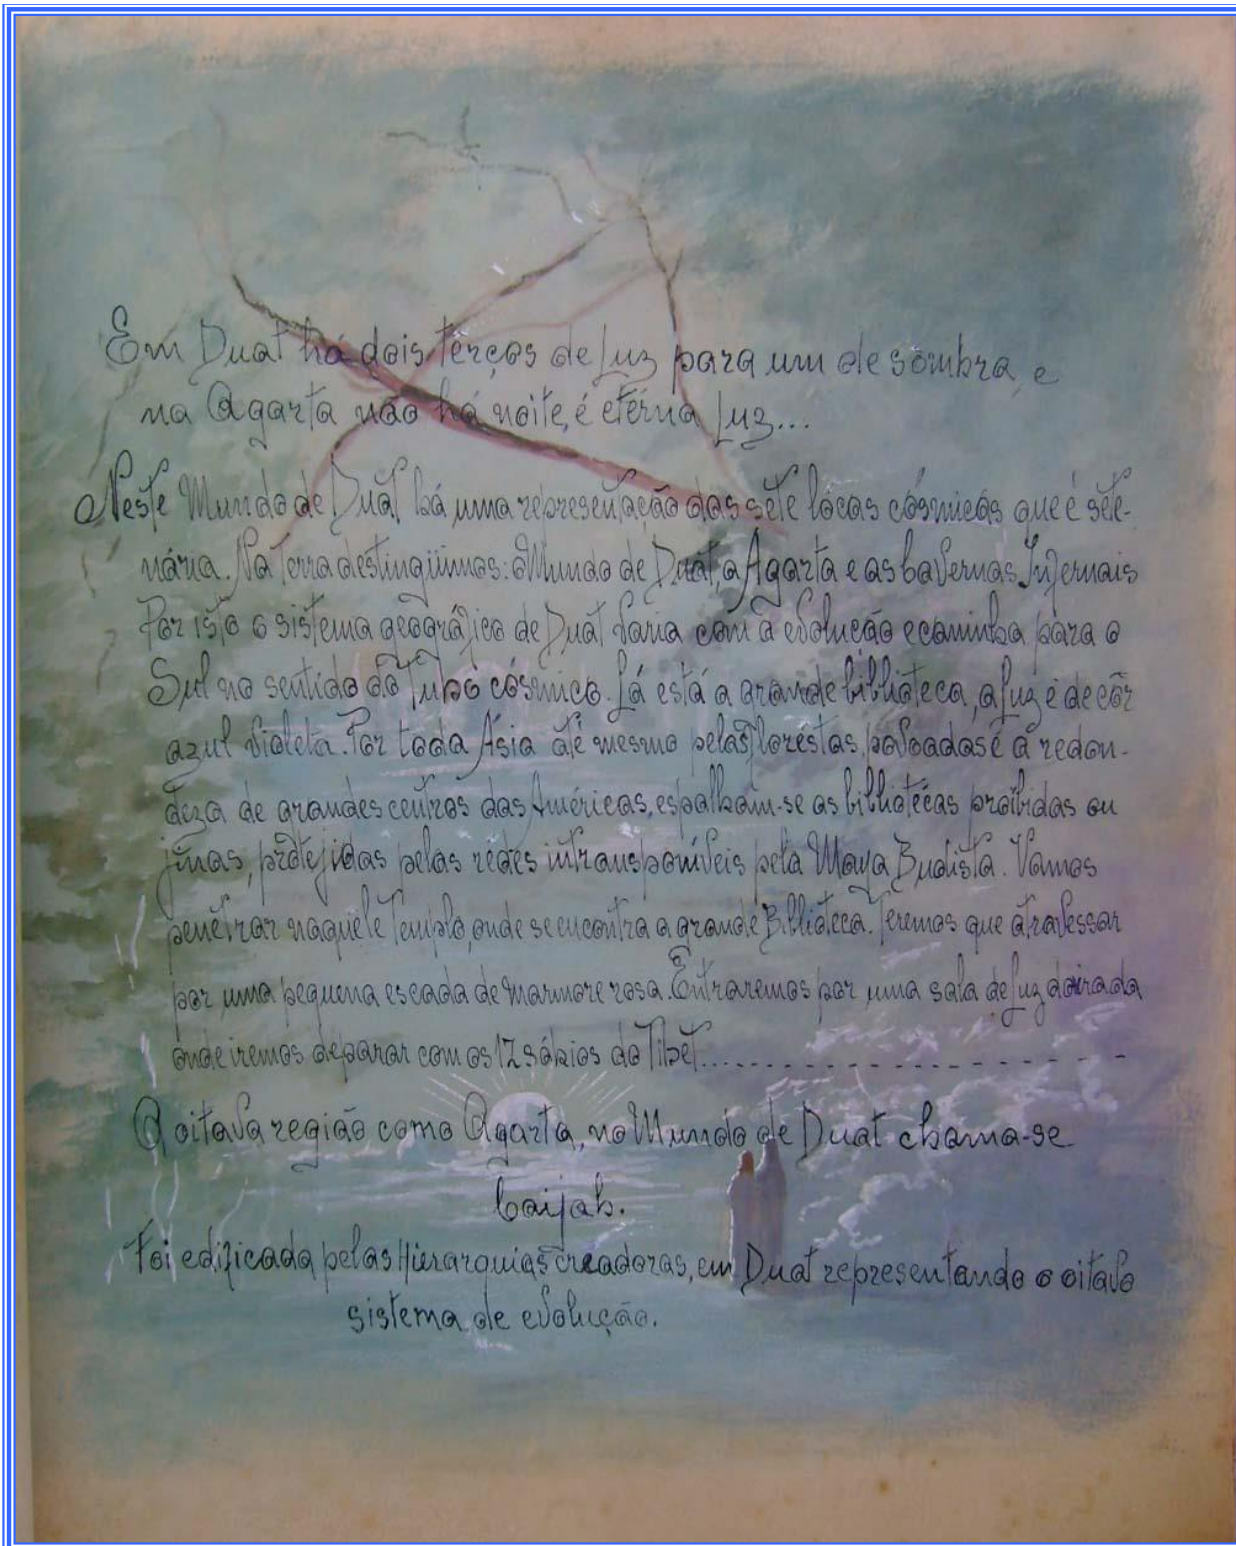 Em Duat há dois terços de Luz para um de sombra, e
na Agarta não há noite, é etérna Luz...
Neste Mundo de Duat, há uma representação das séte lócas cósmicas que é séte-
nária. Na Terra destingüimos: o Mundo de Duat, a Agarta e as Cavernas Infernais
Por isto o sistema geográfico de Duat varia com a evolução e caminha para o
Sul no sentido do Tubo cósmico. Lá está a grande biblioteca, a luz é de côr
azul violeta. Por toda Ásia até mesmo pelas floréstas, povoadas e a redon-
deza de grandes centros das Américas, espalham-se as bibliotécas proíbidas ou
jinas, protejidas pelas rêdes intransponíveis pela Maya Budista. Vamos
penetrar naquele Templo, onde se encontra a grande Biblioteca. Teremos que atravessar
por uma pequena escada de marmore rosa. Entraremos por uma sala de luz doirada
onde iremos deparar com os 12 sábios do Tibet...................
A oitava região como Agarta, no Mundo de Duat chama-se
Caijah.
Foi edificada pelas Hierarquias creadoras, em Duat representando o oitavo
sistema de evolução.